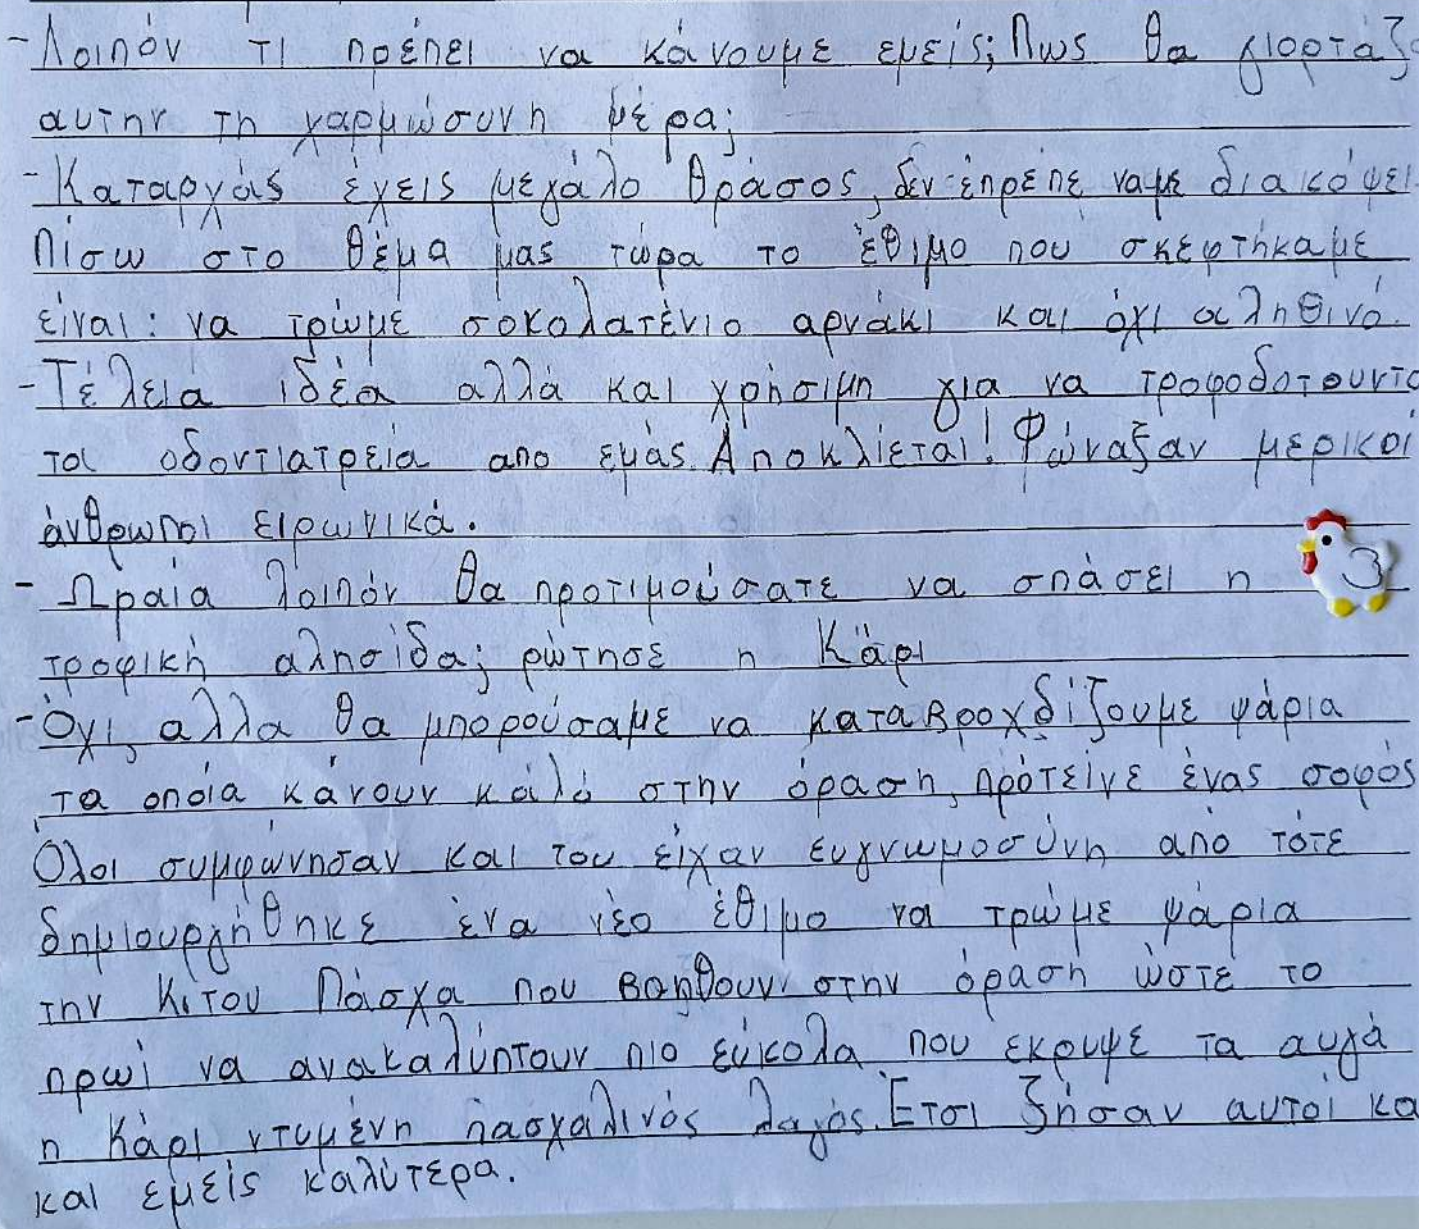 - Λοιπόν τι πρέπει να κάνουμε εμείς; Πως θα γιορτάζο
αυτην τη χαρμώσυνη μέρα;
- Καταρχάς έχεις μεγάλο θράσος, δεν έπρεπε να με διακόψει
Πίσω στο θέμα μας τώρα το έθιμο που σκεφτήκαμε
είναι: να τρώμε σοκολατένιο αρνάκι και όχι αληθινό.
- Τέλεια ιδέα αλλά και χρήσιμη για να τροφοδοτουντα
τα οδοντιατρεία απο εμάς. Αποκλίεται! Φώναξαν μερικοί
άνθρωποι ειρωνικά.
- Ωραία λοιπόν θα προτιμούσατε να σπάσει η
τροφική αλησίδα; ρώτησε η Κάρι
- Όχι, αλλα θα μπορούσαμε να καταβροχδίζουμε ψάρια
τα οποία κάνουν καλό στην όραση, πρότεινε ένας σοφός
Όλοι συμφώνησαν και του είχαν ευγνωμοσύνη από τότε
δημιουργήθηκε ένα νέο έθιμο να τρώμε ψάρια
την Κ. του Πάσχα που βοηθουν στην όραση ώστε το
πρωί να ανακαλύπτουν πιο εύκολα που εκρυψε τα αυγά
η Κάρι ντυμένη πασχαλινός λαγός. Έτσι ζήσαν αυτοί κα
και εμείς καλύτερα.